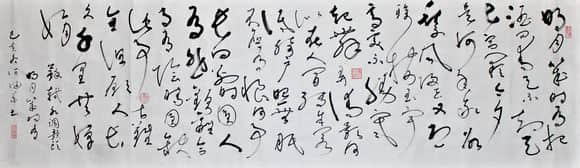 明月幾時有把
酒問青天不知天
上宮闕今夕
是何年我欲
乘風歸去又恐
瓊樓玉宇
高處不勝寒
起舞弄清影何
似在人間轉朱閣
低綺戶照無眠
不應有恨何事
長向別時圓人
有悲歡離合月
有陰晴圓缺
此事古難
全但願人長
久千里共嬋
娟
蘇軾水調歌頭
明月幾時有